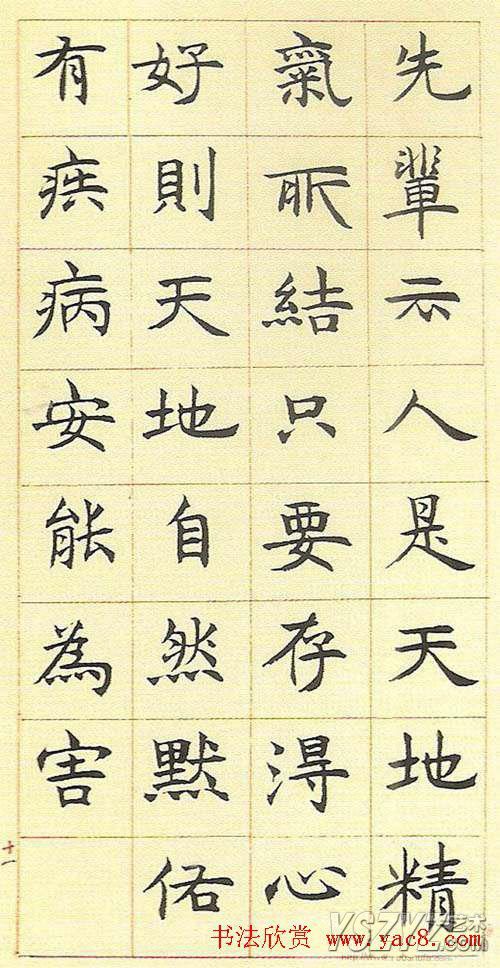 先輩云人是天地精
氣所結只要存得心
好則天地自然默佑
有疾病安能為害
十一
书法欣赏 www.yac8.com